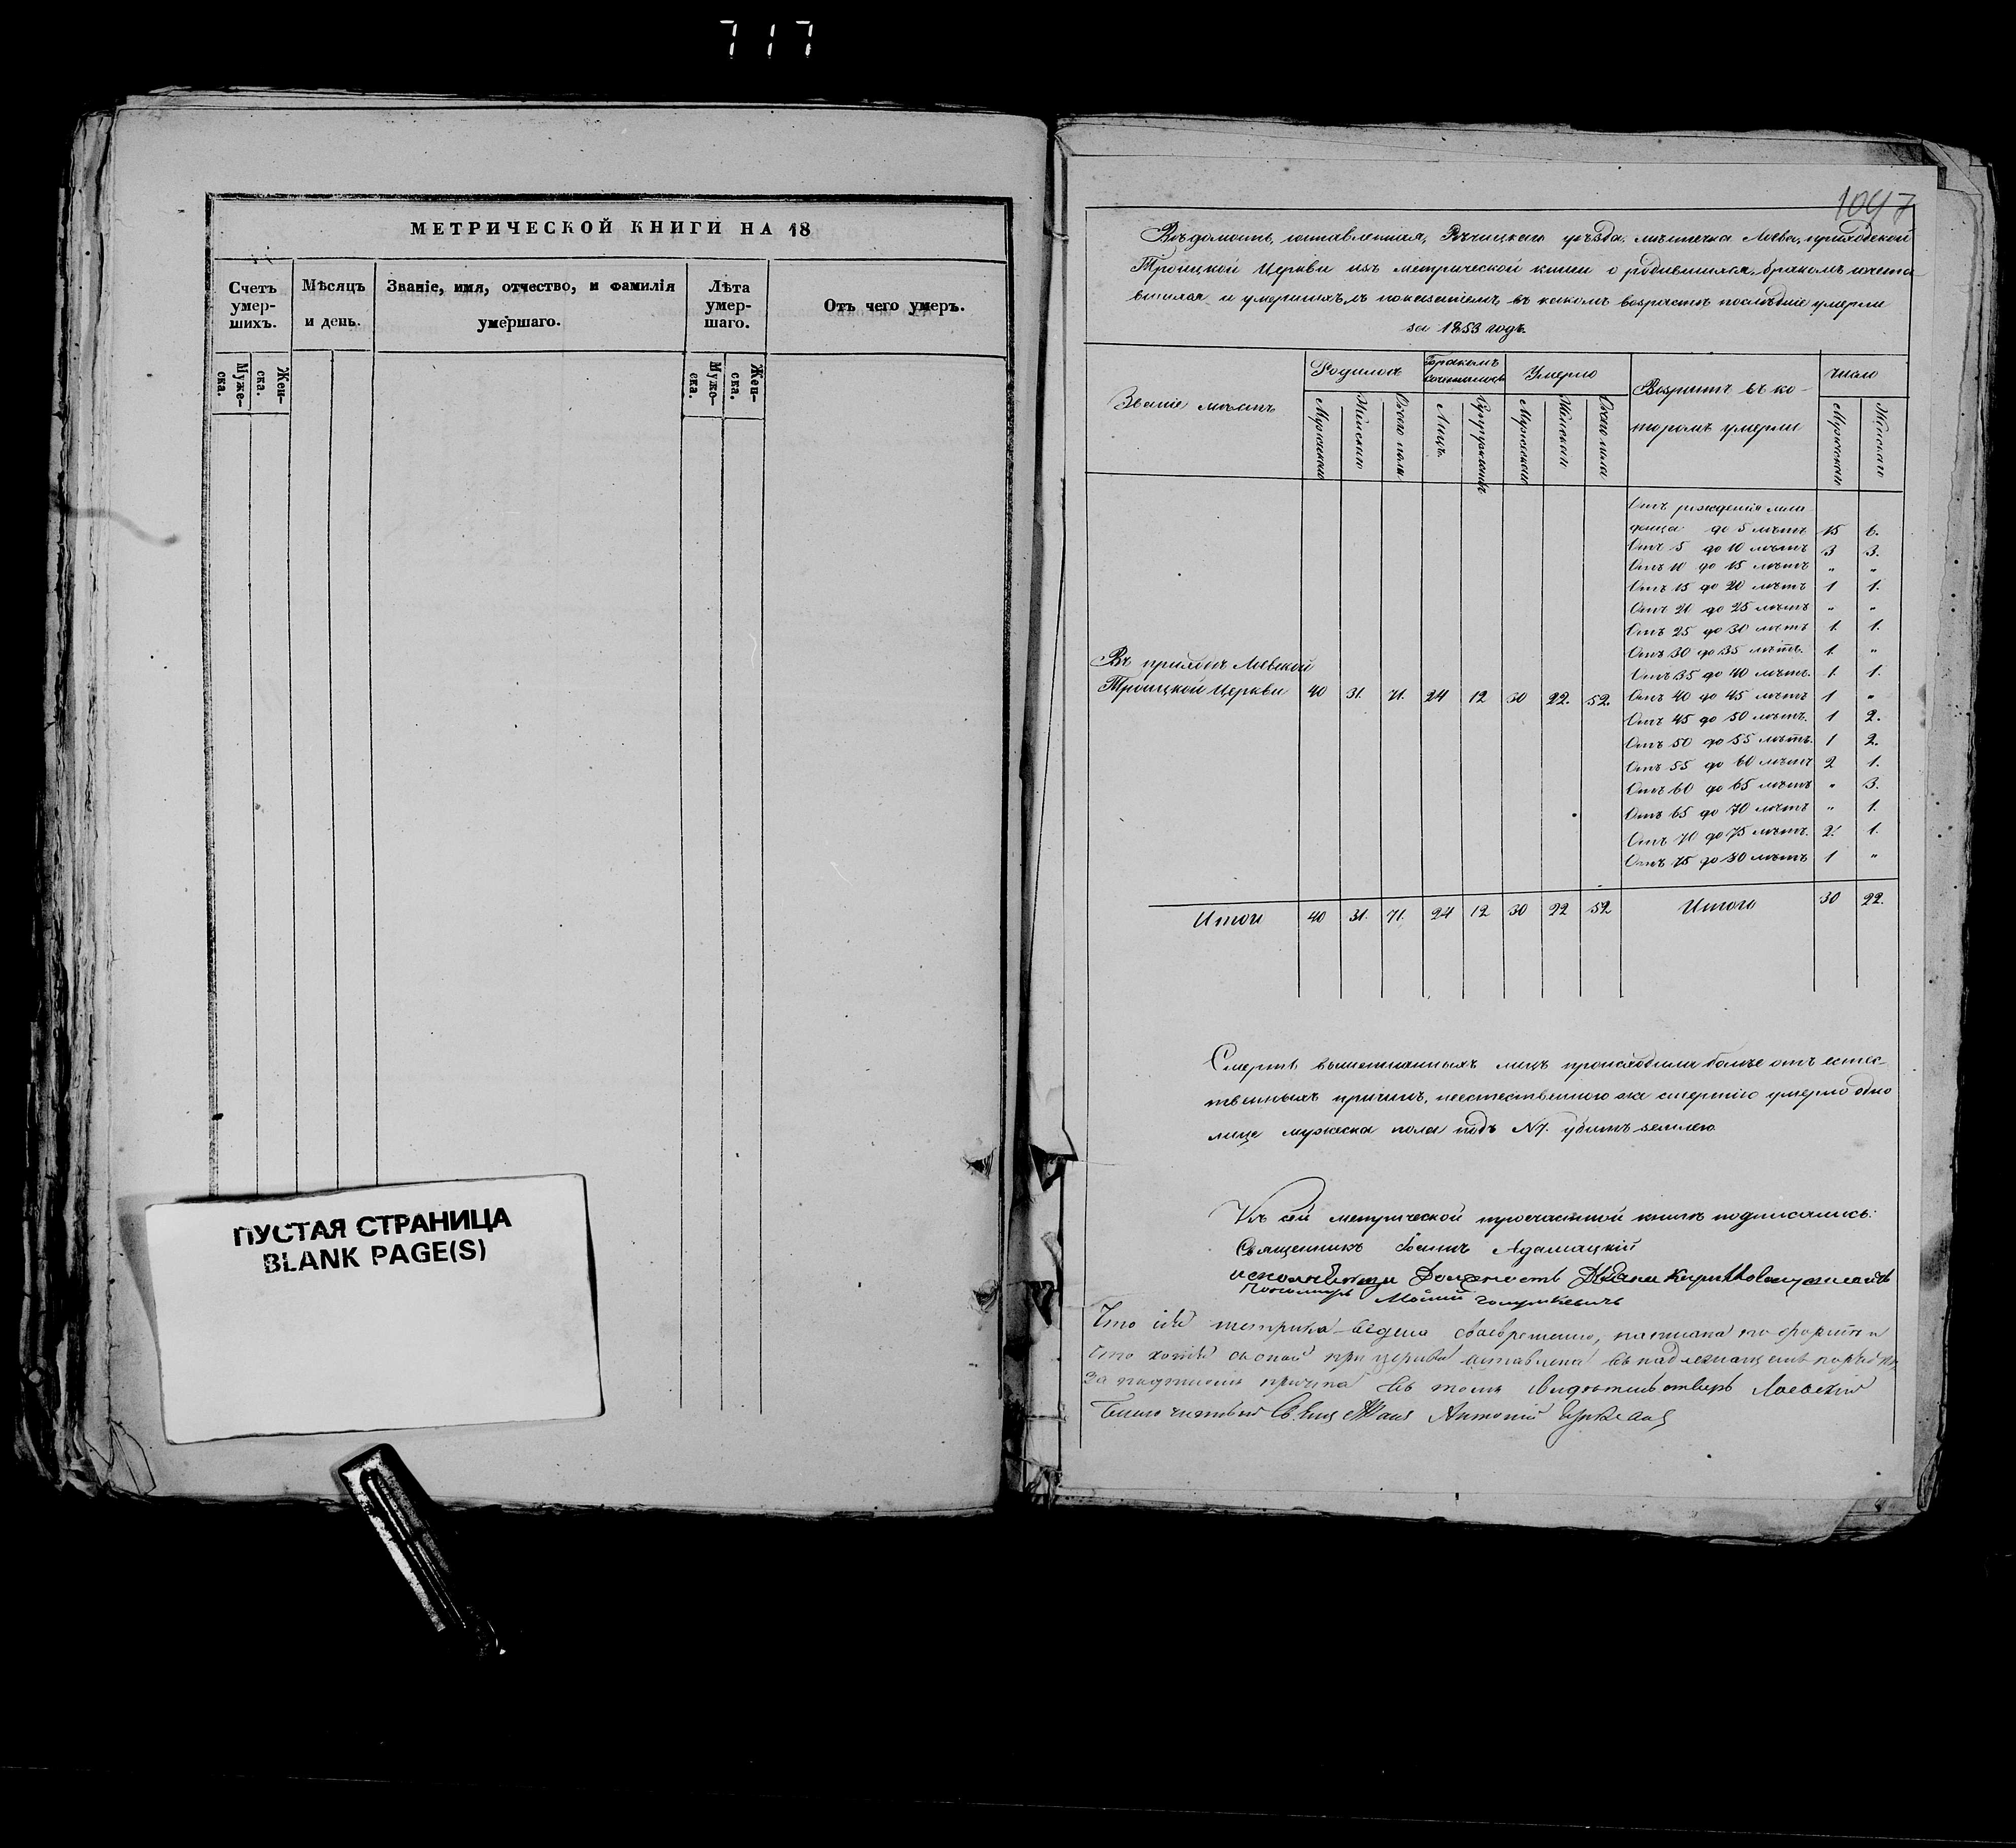 717
МЕТРИЧЕСКОЙ КНИГИ НА 18
Счетъ умер- шихъ.
Мѣсяцъ и день.
Званіе, имя, отчество, и фамилія умершаго.
Лѣта умер- шаго.
Отъ чего умеръ.
Муже- ска.
Жен- ска.
Муже- ска.
Жен- ска.
ПУСТАЯ СТРАНИЦА
BLANK PAGE(S)
1047
Вѣдомость, составленная, Рѣчицкаго уѣзда, мѣстечка Лоева, приходской
Троицкой Церкви изъ метрической книги о родившихся, бракомъ сочета
вшихся и умершихъ, съ показаніемъ въ какомъ возрастѣ послѣдніе умерли
за 1853 годъ.
Званіе мѣстъ
Родилось
Бракомъ сочеталось
Умерло
Возрастъ въ ко-
торомъ умерли
число
Мужскаго
Женскаго
Обоего пола
Лицъ
Супружествъ
Мужскаго
Женскаго
Обоего пола
Мужскаго
Женскаго
Отъ рожденія мла
денца до 5 лѣтъ 15 6.
Отъ 5 до 10 лѣтъ 3 3.
Отъ 10 до 15 лѣтъ " "
Отъ 15 до 20 лѣтъ 1 1.
Отъ 20 до 25 лѣтъ " "
Отъ 25 до 30 лѣтъ 1. 1.
Отъ 30 до 35 лѣтъ. 1. "
Отъ 35 до 40 лѣтъ. 1. 1.
Въ приходѣ Лоевской
Троицкой Церкви 40 31. 71. 24 12 30 22. 52. Отъ 40 до 45 лѣтъ 1 "
Отъ 45 до 50 лѣтъ. 1 2.
Отъ 50 до 55 лѣтъ. 1 2.
Отъ 55 до 60 лѣтъ 2 1.
Отъ 60 до 65 лѣтъ " 3.
Отъ 65 до 70 лѣтъ " 1.
Отъ 70 до 75 лѣтъ. 2. 1.
Отъ 75 до 80 лѣтъ 1 "
Итого 40 31. 71. 24 12 30 22 52 Итого 30 22.
Смерть вышеписанныхъ лицъ происходила болѣе отъ естес-
твенныхъ причинъ, неестественною же смертію умерло одно
лице мужеска пола подъ N 7. убитъ землею
Къ сей метрической книгѣ подписались:
Священникъ Адамацкій
Должность
Пономарь
Что сія метрика ведена своевременно, написана по формѣ и
что при церкви оставлена въ надлежащемъ порядкѣ
за подписомъ причта въ томъ Лоевскій
Антоній